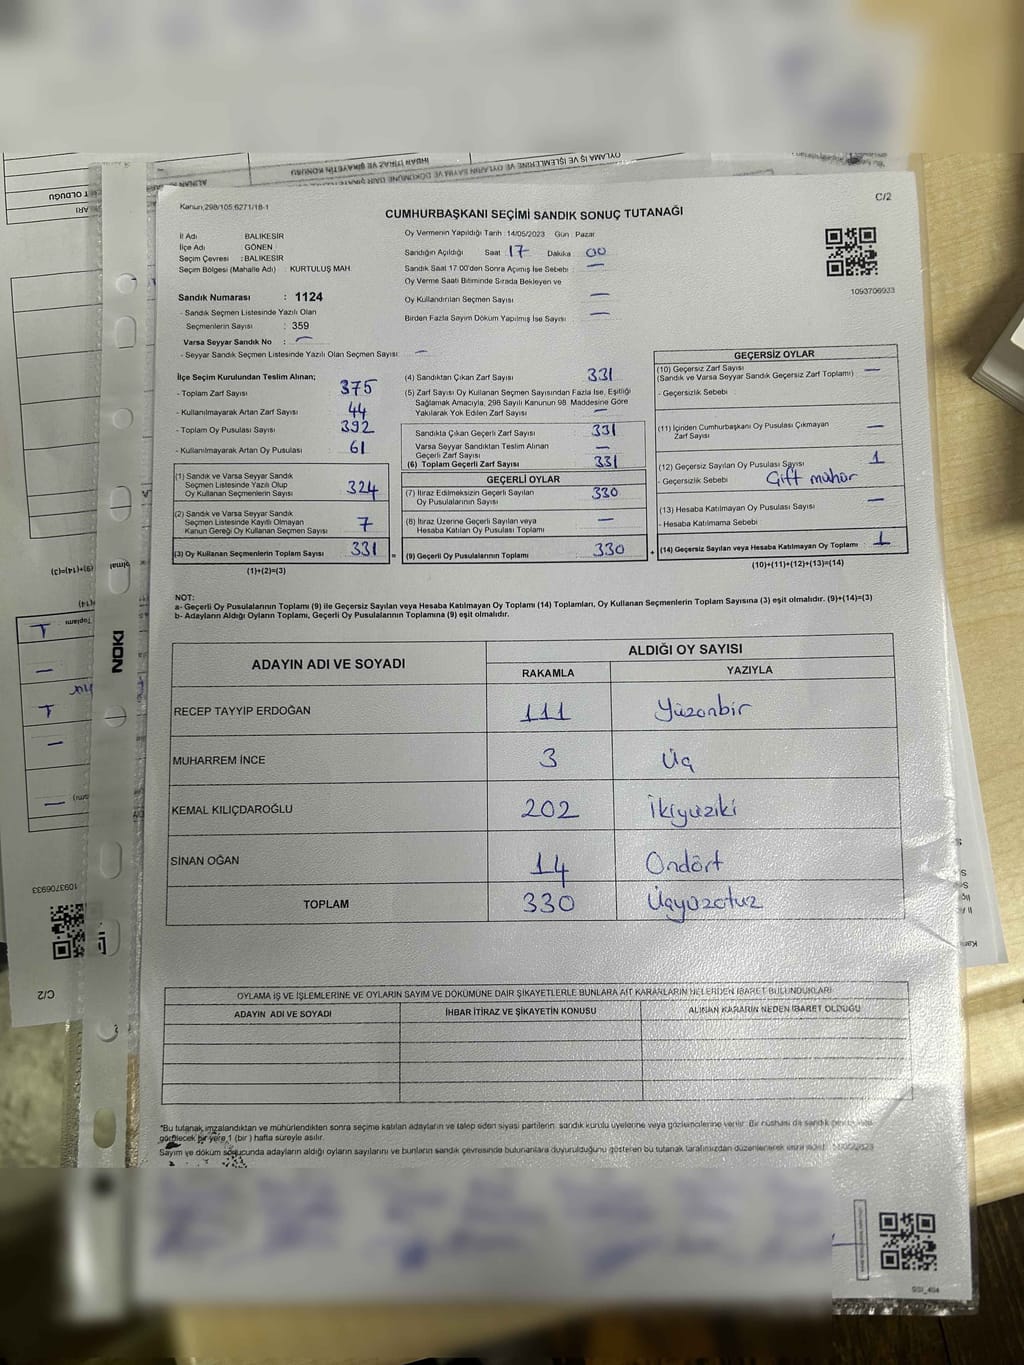 Kanun,298/105,6271/18-1
C/2
CUMHURBAŞKANI SEÇİMİ SANDIK SONUÇ TUTANAĞI
İl Adı BALIKESİR
İlçe Adı GÖNEN
Seçim Çevresi : BALIKESİR
Seçim Bölgesi (Mahalle Adı) : KURTULUŞ MAH
Sandık Numarası : 1124
- Sandık Seçmen Listesinde Yazılı Olan
Seçmenlerin Sayısı : 359
Varsa Seyyar Sandık No : —
- Seyyar Sandık Seçmen Listesinde Yazılı Olan Seçmen Sayısı: —
Oy Vermenin Yapıldığı Tarih : 14/05/2023 Gün : Pazar
Sandığın Açıldığı Saat 17 Dakika 00
Sandık Saat 17:00'den Sonra Açılmış İse Sebebi : —
Oy Verme Saati Bitiminde Sırada Bekleyen ve
Oy Kullandırılan Seçmen Sayısı —
Birden Fazla Sayım Döküm Yapılmış İse Sayısı —
1093706933
İlçe Seçim Kurulundan Teslim Alınan;
- Toplam Zarf Sayısı 375
- Kullanılmayarak Artan Zarf Sayısı 44
- Toplam Oy Pusulası Sayısı 392
- Kullanılmayarak Artan Oy Pusulası 61
(1) Sandık ve Varsa Seyyar Sandık
Seçmen Listesinde Yazılı Olup
Oy Kullanan Seçmenlerin Sayısı 324
(2) Sandık ve Varsa Seyyar Sandık
Seçmen Listesinde Kayıtlı Olmayan
Kanun Gereği Oy Kullanan Seçmen Sayısı 7
(3) Oy Kullanan Seçmenlerin Toplam Sayısı 331
(1)+(2)=(3)
=
(4) Sandıktan Çıkan Zarf Sayısı 331
(5) Zarf Sayısı Oy Kullanan Seçmen Sayısından Fazla İse, Eşitliği
Sağlamak Amacıyla, 298 Sayılı Kanunun 98. Maddesine Göre
Yakılarak Yok Edilen Zarf Sayısı —
Sandıkta Çıkan Geçerli Zarf Sayısı 331
Varsa Seyyar Sandıktan Teslim Alınan
Geçerli Zarf Sayısı —
(6) Toplam Geçerli Zarf Sayısı 331
GEÇERLİ OYLAR
(7) İtiraz Edilmeksizin Geçerli Sayılan
Oy Pusulalarının Sayısı 330
(8) İtiraz Üzerine Geçerli Sayılan veya
Hesaba Katılan Oy Pusulası Toplamı —
(9) Geçerli Oy Pusulalarının Toplamı 330
+
GEÇERSİZ OYLAR
(10) Geçersiz Zarf Sayısı —
(Sandık ve Varsa Seyyar Sandık Geçersiz Zarf Toplamı)
- Geçersizlik Sebebi
(11) İçinden Cumhurbaşkanı Oy Pusulası Çıkmayan
Zarf Sayısı —
(12) Geçersiz Sayılan Oy Pusulası Sayısı 1
- Geçersizlik Sebebi Çift mühür
(13) Hesaba Katılmayan Oy Pusulası Sayısı —
- Hesaba Katılmama Sebebi
(14) Geçersiz Sayılan veya Hesaba Katılmayan Oy Toplamı 1
(10)+(11)+(12)+(13)=(14)
NOT:
a- Geçerli Oy Pusulalarının Toplamı (9) ile Geçersiz Sayılan veya Hesaba Katılmayan Oy Toplamı (14) Toplamları, Oy Kullanan Seçmenlerin Toplam Sayısına (3) eşit olmalıdır. (9)+(14)=(3)
b- Adayların Aldığı Oyların Toplamı, Geçerli Oy Pusulalarının Toplamına (9) eşit olmalıdır.
ADAYIN ADI VE SOYADI ALDIĞI OY SAYISI
RAKAMLA YAZIYLA
RECEP TAYYİP ERDOĞAN 111 Yüzonbir
MUHARREM İNCE 3 Üç
KEMAL KILIÇDAROĞLU 202 İkiyüziki
SİNAN OĞAN 14 Ondört
TOPLAM 330 Üçyüzotuz
OYLAMA İŞ VE İŞLEMLERİNE VE OYLARIN SAYIM VE DÖKÜMÜNE DAİR ŞİKAYETLERLE BUNLARA AİT KARARLARIN NELERDEN İBARET BULUNDUKLARI
ADAYIN ADI VE SOYADI İHBAR İTİRAZ VE ŞİKAYETİN KONUSU ALINAN KARARIN NEDEN İBARET OLDUĞU
*Bu tutanak imzalandıktan ve mühürlendikten sonra seçime katılan adayların ve talep eden siyasi partilerin sandık kurulu üyelerine veya gözlemcilerine verilir. Bir nüshası da sandık
görülecek bir yere 1 (bir) hafta süreyle asılır.
Sayım ve döküm sonucunda adayların aldığı oyların sayılarını ve bunların sandık çevresinde bulunanlara duyurulduğunu gösteren bu tutanak tarafımızdan düzenlenerek
NOKI
1093706933
C/2